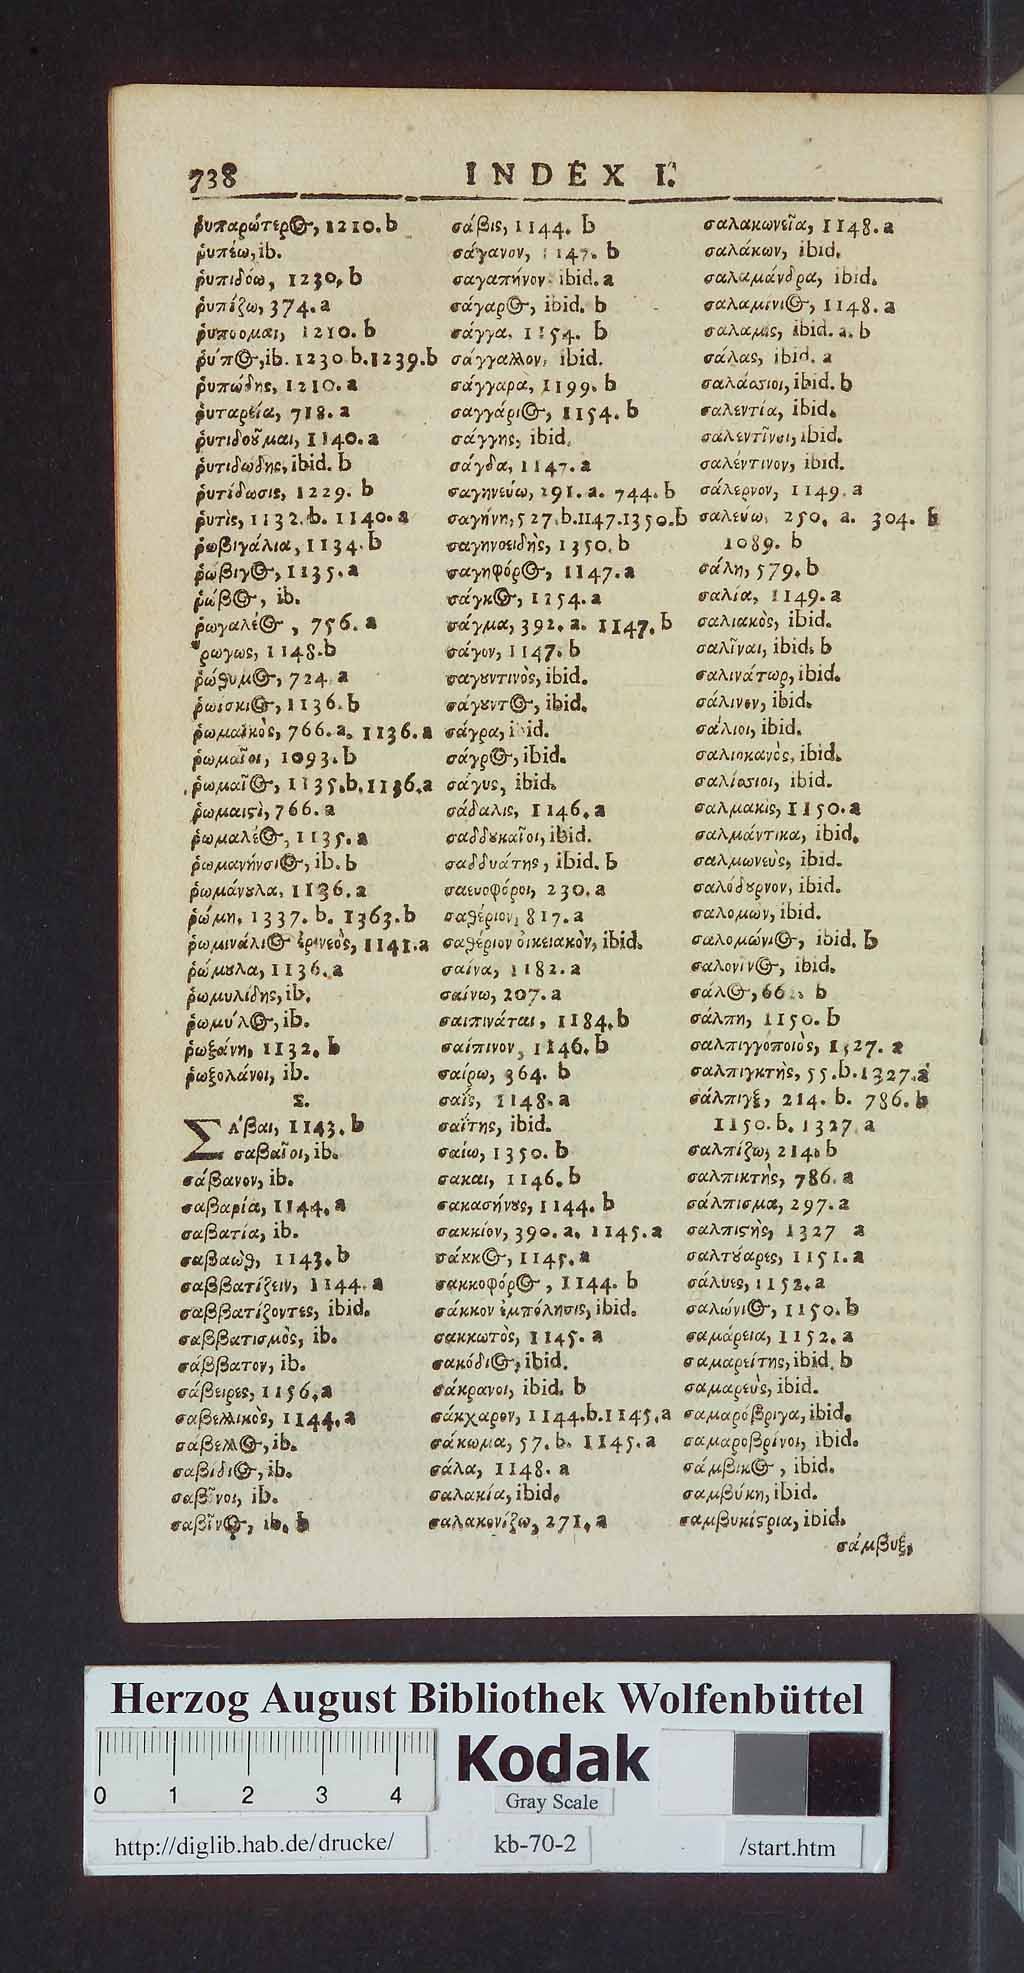 738 INDEX I.
ῥυπαρώτερος, 1210. b
ῥυπέω, ib.
ῥυπιδόω, 1230. b
ῥυπίζω, 374. a
ῥυπόομαι, 1210. b
ῥύπος, ib. 1230. b. 1239. b
ῥυπώδης, 1210. a
ῥυταρεία, 718. a
ῥυτιδοῦμαι, 1140. a
ῥυτιδώδης, ibid. b
ῥυτίδωσις, 1229. b
ῥυτὶς, 1132. b. 1140. a
ῥωβιγάλια, 1134. b
ῥώβιγος, 1135. a
ῥώβος, ib.
ῥωγαλέος, 756. a
ῥωγως, 1148. b
ῥώθυμος, 724. a
ῥωίσκιος, 1136. b
ῥωμαϊκὸς, 766. a. 1136. a
ῥωμαῖοι, 1093. b
ῥωμαῖος, 1135. b. 1136. a
ῥωμαιςὶ, 766. a
ῥωμαλέος, 1135. a
ῥωμανήνσιος, ib. b
ῥωμάνυλα, 1136. a
ῥώμη, 1337. b. 1363. b
ῥωμινάλιος ἐρινεὸς, 1141. a
ῥώμυλα, 1136. a
ῥωμυλίδης, ib.
ῥωμύλος, ib.
ῥωξάνη, 1132. b
ῥωξολάνοι, ib.
Σ.
ΣΑ'βαι, 1143. b
σαβαῖοι, ib.
σάβανον, ib.
σαβαρία, 1144. a
σαβατία, ib.
σαβαὼθ, 1143. b
σαββατίζειν, 1144. a
σαββατίζοντες, ibid.
σαββατισμὸς, ib.
σάββατον, ib.
σάβειρες, 1156. a
σαβελλικὸς, 1144. a
σάβελλος, ib.
σαβίδιος, ib.
σαβῖνοι, ib.
σαβῖνος, ib. b
σάβις, 1144. b
σάγανον, 1147. b
σαγαπήνον ibid. a
σάγαρος, ibid. b
σάγγα, 1154. b
σάγγαλλον, ibid.
σάγγαρα, 1199. b
σαγγάριος, 1154. b
σάγγης, ibid.
σάγδα, 1147. a
σαγηνεύω, 291. a. 744. b
σαγήνη, 527. b. 1147. 1350. b
σαγηνοειδὴς, 1350. b
σαγηφόρος, 1147. a
σάγκος, 1154. a
σάγμα, 392. a. 1147. b
σάγον, 1147. b
σαγουντινὸς, ibid.
σάγουντος, ibid.
σάγρα, ibid.
σάγρος, ibid.
σάγυς, ibid.
σάδαλις, 1146. a
σαδδουκαῖοι, ibid.
σαδδυάτης, ibid. b
σαευοφόροι, 230. a
σαθέριον, 817. a
σαθέριον οἰκειακὸν, ibid.
σαίνα, 1182. a
σαίνω, 207. a
σαιπινάται, 1184. b
σαίπινον, 1146. b
σαίρω, 364. b
σαΐς, 1148. a
σαΐτης, ibid.
σαίω, 1350. b
σακαι, 1146. b
σακασήνους, 1144. b
σακκίον, 390. a. 1145. a
σάκκος, 1145. a
σακκοφόρος, 1144. b
σάκκου ἐμπόλησις, ibid.
σακκωτὸς, 1145. a
σακόδιος, ibid.
σάκρανοι, ibid. b
σάκχαρον, 1144. b. 1145. a
σάκωμα, 57. b. 1145. a
σάλα, 1148. a
σαλακία, ibid.
σαλακονίζω, 271. a
σαλακωνεῖα, 1148. a
σαλάκων, ibid.
σαλαμάνδρα, ibid.
σαλαμίνιος, 1148. a
σαλαμὶς, ibid. a. b
σάλας, ibid. a
σαλάσσιοι, ibid. b
σαλεντία, ibid.
σαλεντῖνοι, ibid.
σαλέντινον, ibid.
σάλερνον, 1149. a
σαλεύω, 250. a. 304. b
1089. b
σάλη, 579. b
σαλία, 1149. a
σαλιακὸς, ibid.
σαλῖναι, ibid. b
σαλινάτωρ, ibid.
σάλινον, ibid.
σάλιοι, ibid.
σαλιοκανὸς, ibid.
σαλίσσιοι, ibid.
σαλμακὶς, 1150. a
σαλμάντικα, ibid.
σαλμωνεὺς, ibid.
σαλόδουρνον, ibid.
σαλομὼν, ibid.
σαλομώνιος, ibid. b
σαλονῖνος, ibid.
σάλος, b
σάλπη, 1150. b
σαλπιγγοποιὸς, 1327. a
σαλπιγκτὴς, 55. b. 1327. a
σάλπιγξ, 214. b. 786. b
1150. b. 1327. a
σαλπίζω, 214. b
σαλπικτὴς, 786. a
σάλπισμα, 297. a
σαλπιςὴς, 1327 a
σαλτούαρες, 1151. a
σάλυες, 1152. a
σαλώνιος, 1150. b
σαμάρεια, 1152. a
σαμαρείτης, ibid. b
σαμαρεὺς, ibid.
σαμαρόβριγα, ibid.
σαμαροβρίνοι, ibid.
σάμβικος, ibid.
σαμβύκη, ibid.
σαμβυκίςρια, ibid.
σάμβυξ,
Herzog August Bibliothek Wolfenbüttel
0 1 2 3 4
Kodak
Gray Scale
http://diglib.hab.de/drucke/ kb-70-2 /start.htm